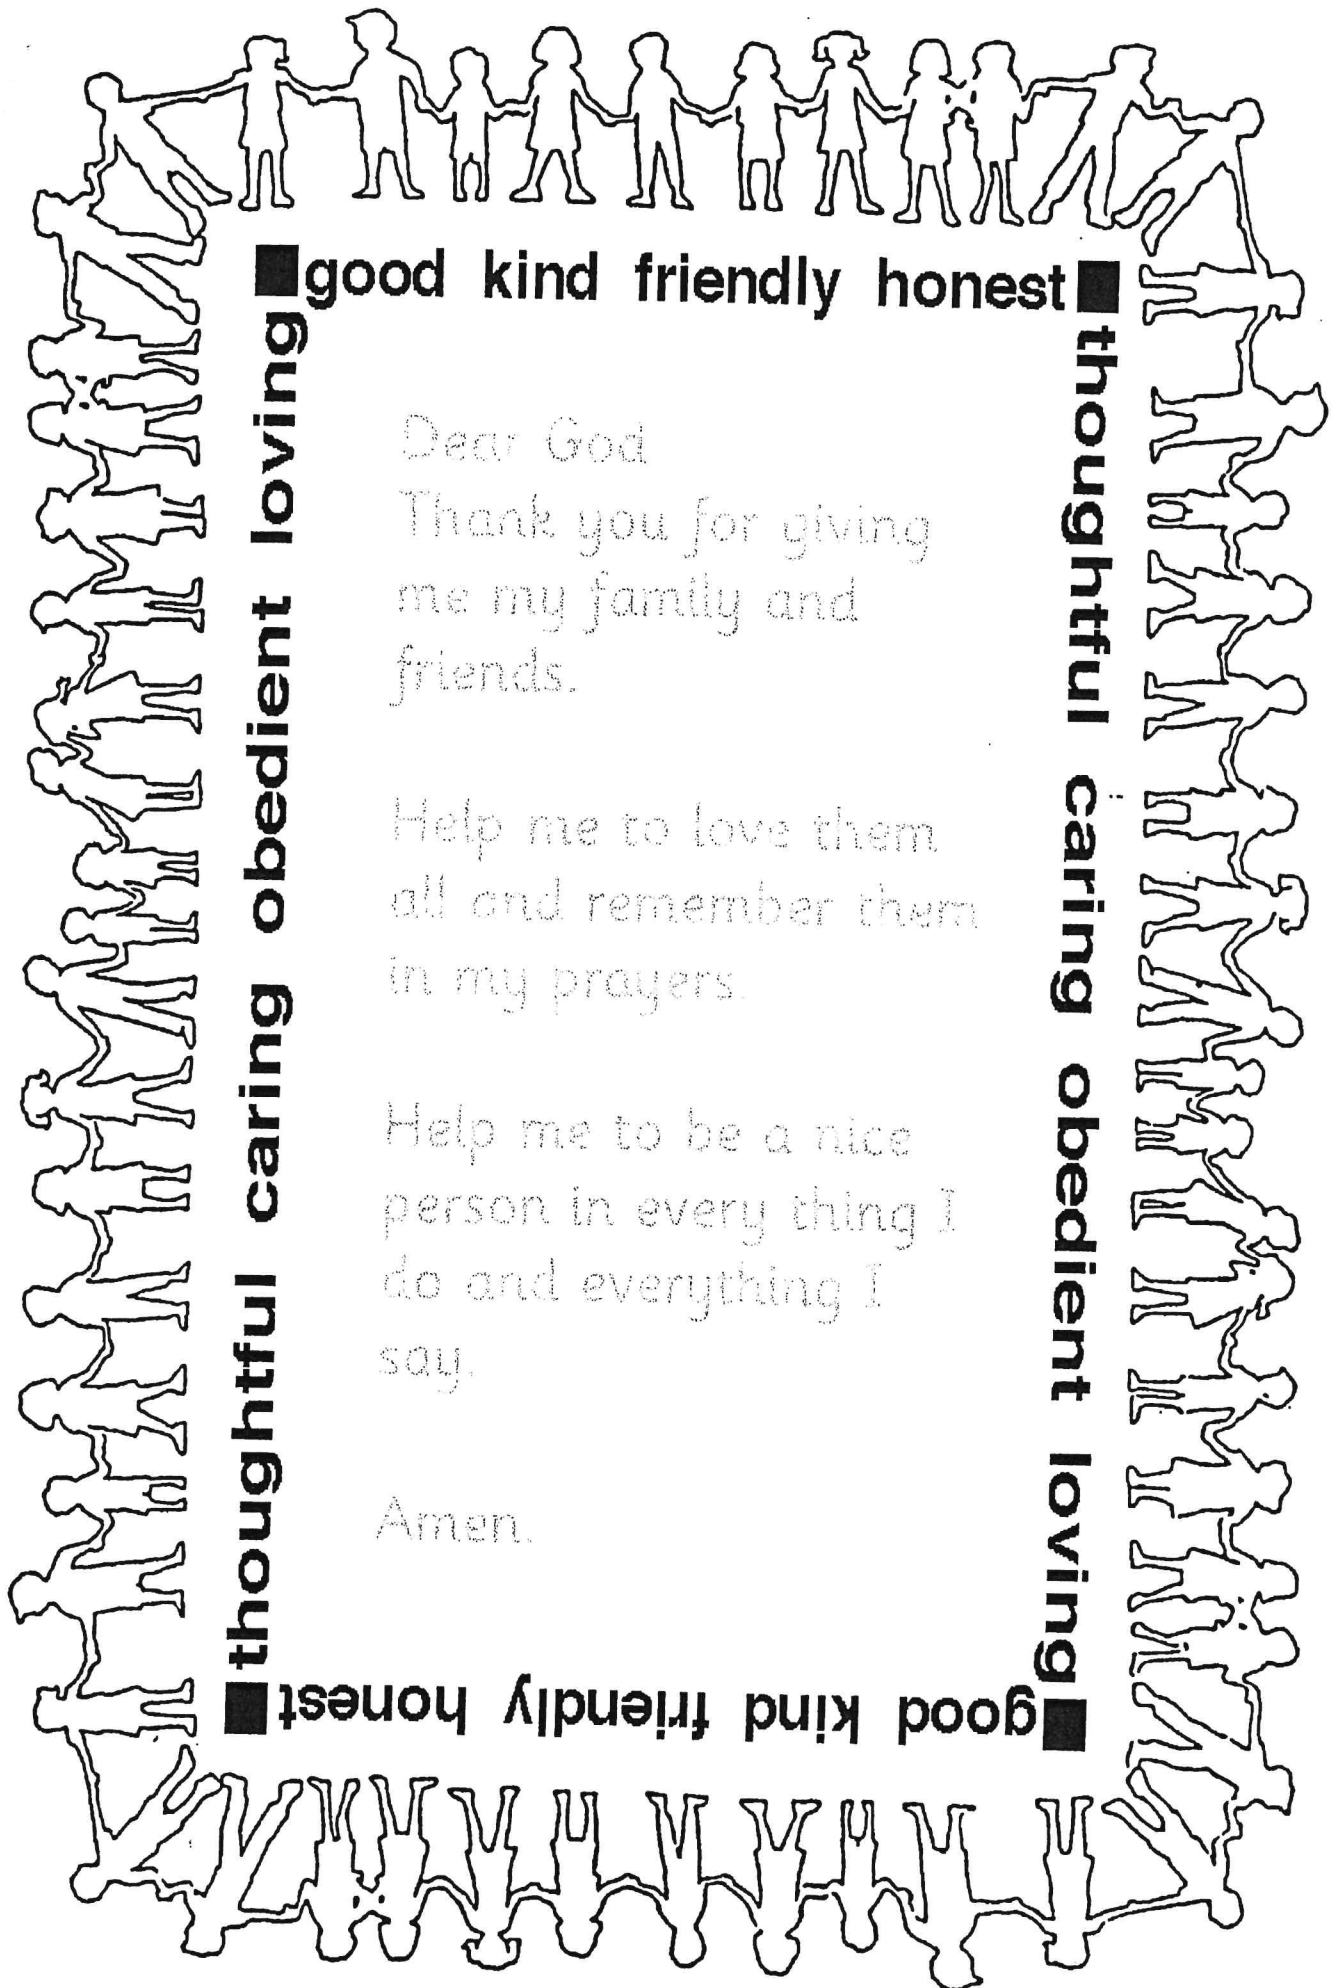 good kind friendly honest
thoughtful caring obedient loving
good kind friendly honest
thoughtful caring obedient loving
Dear God
Thank you for giving
me my family and
friends.
Help me to love them
all and remember them
in my prayers.
Help me to be a nice
person in every thing I
do and everything I
say.
Amen.